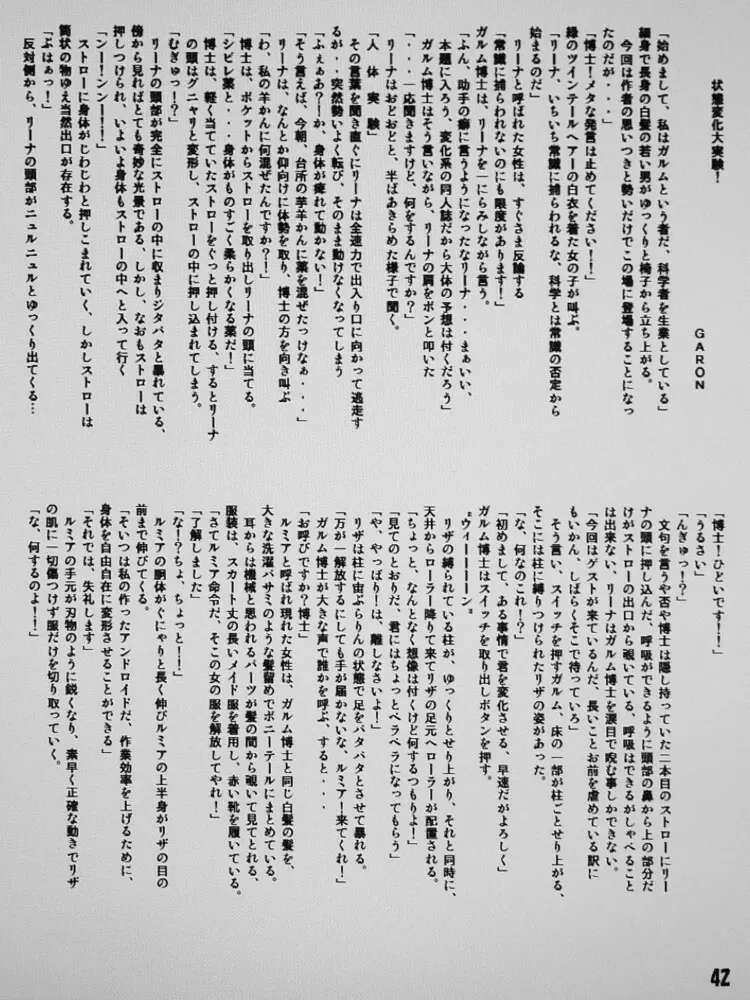 状態変化大実験！
GARON
「始めまして、私はガルムという者だ、科学者を生業としている」
細身で長身の白髪の若い男がゆっくりと椅子から立ち上がる。
今回は作者の思いつきと勢いだけでこの場に登場することになっ
たのだが・・・」
「博士！メタな発言は止めてください！！」
緑のツインテールヘアーの白衣を着た女の子が叫ぶ。
「リーナ、いちいち常識に捕らわれるな、科学とは常識の否定から
始まるのだ」
リーナと呼ばれた女性は、すぐさま反論する
「常識に捕らわれないのにも限度があります！」
ガルム博士は、リーナを一にらみしながら言う。
「ふん、助手の癖に言うようになったなリーナ・・・まぁいい、
本題に入ろう、変化系の同人誌だから大体の予想は付くだろう」
ガルム博士はそう言いながら、リーナの肩をポンと叩いた
「・・・一応聞きますけど、何をするんですか？」
リーナはおどおどと、半ばあきらめた様子で聞く。
「人体実験」
その言葉を聞き直ぐにリーナは全速力で出入り口に向かって逃走す
るが・・突然勢いよく転び、そのまま動けなくなってしまう
「ふぇぁあ？！か、身体が痺れて動かない！」
「そう言えば、今朝、台所の芋羊かんに薬を混ぜたっけなぁ・・・」
リーナは、なんとか仰向けに体勢を取り、博士の方を向き叫ぶ
「わ、私の羊かんに何混ぜたんですか？！」
博士は、ポケットからストローを取り出しリーナの頭に当てる。
「シビレ薬と・・・身体がものすごく柔らかくなる薬だ！」
博士は、軽く当てていたストローをぐっと押し付ける、するとリーナ
の頭はグニャリと変形し、ストローの中に押し込まれてしまう。
「むぎゅっ！？」
リーナの頭部が完全にストローの中に収まりジタバタと暴れている、
傍から見ればとても奇妙な光景である、しかし、なおもストローは
押しつけられ、いよいよ身体もストローの中へと入って行く
「ンー！ンンー！！」
ストローに身体がじわじわと押しこまれていく、しかしストローは
筒状の物ゆえ当然出口が存在する。
「ぷはぁっ！」
反対側から、リーナの頭部がニュルニュルとゆっくり出てくる…
「博士！ひどいです！！」
「うるさい」
「んぎゅっ！？」
文句を言うや否や博士は隠し持っていた二本目のストローにリー
ナの頭に押し込んだ、呼吸ができるように頭部の鼻から上の部分だ
けがストローの出口から覗いている、呼吸はできるがしゃべること
は出来ない、リーナはガルム博士を涙目で睨む事しかできない。
「今回はゲストが来ているんだ、長いことお前を虐めている訳に
もいかん、しばらくそこで待っていろ」
そう言い、スイッチを押すガルム、床の一部が柱ごとせり上がる、
そこには柱に縛りつけられたリザの姿があった。
「な、何なのこれ！？」
「初めまして、ある事情で君を変化させる、早速だがよろしく」
ガルム博士はスイッチを取り出しボタンを押す。
"ウィーーーーン"
リザの縛られている柱が、ゆっくりとせり上がり、それと同時に、
天井からローラー降りて来てリザの足元へローラーが配置される。
「ちょっと、なんとなく想像は付くけど何するつもりよ！」
「見てのとおりだ、君にはちょっとペラペラになってもらう」
「や、やっぱり！は、離しなさいよ！」
リザは柱に宙ぶらりんの状態で足をバタバタとさせて暴れる。
「万が一解放するにしても手が届かないな、ルミア！来てくれ！」
ガルム博士が大きな声で誰かを呼ぶ、すると・・・
「お呼びですか？博士」
ルミアと呼ばれ現れた女性は、ガルム博士と同じ白髪の髪を、
大きな洗濯バサミのような髪留めでポニーテールにまとめている。
耳からは機械と思われるパーツが髪の間から覗いて見てとれる、
服装は、スカート丈の長いメイド服を着用し、赤い靴を履いている。
「さてルミア命令だ、そこの女の服を解放してやれ！」
「了解しました」
「な！？ちょ、ちょっと！！」
ルミアの胴体がぐにゃりと長く伸びルミアの上半身がリザの目の
前まで伸びてくる。
「そいつは私の作ったアンドロイドだ、作業効率を上げるために、
身体を自由自在に変形させることができる」
「それでは、失礼します」
ルミアの手元が刃物のように鋭くなり、素早く正確な動きでリザ
の肌に一切傷つけず服だけを切り取っていく。
「な、何するのよ！！」
42